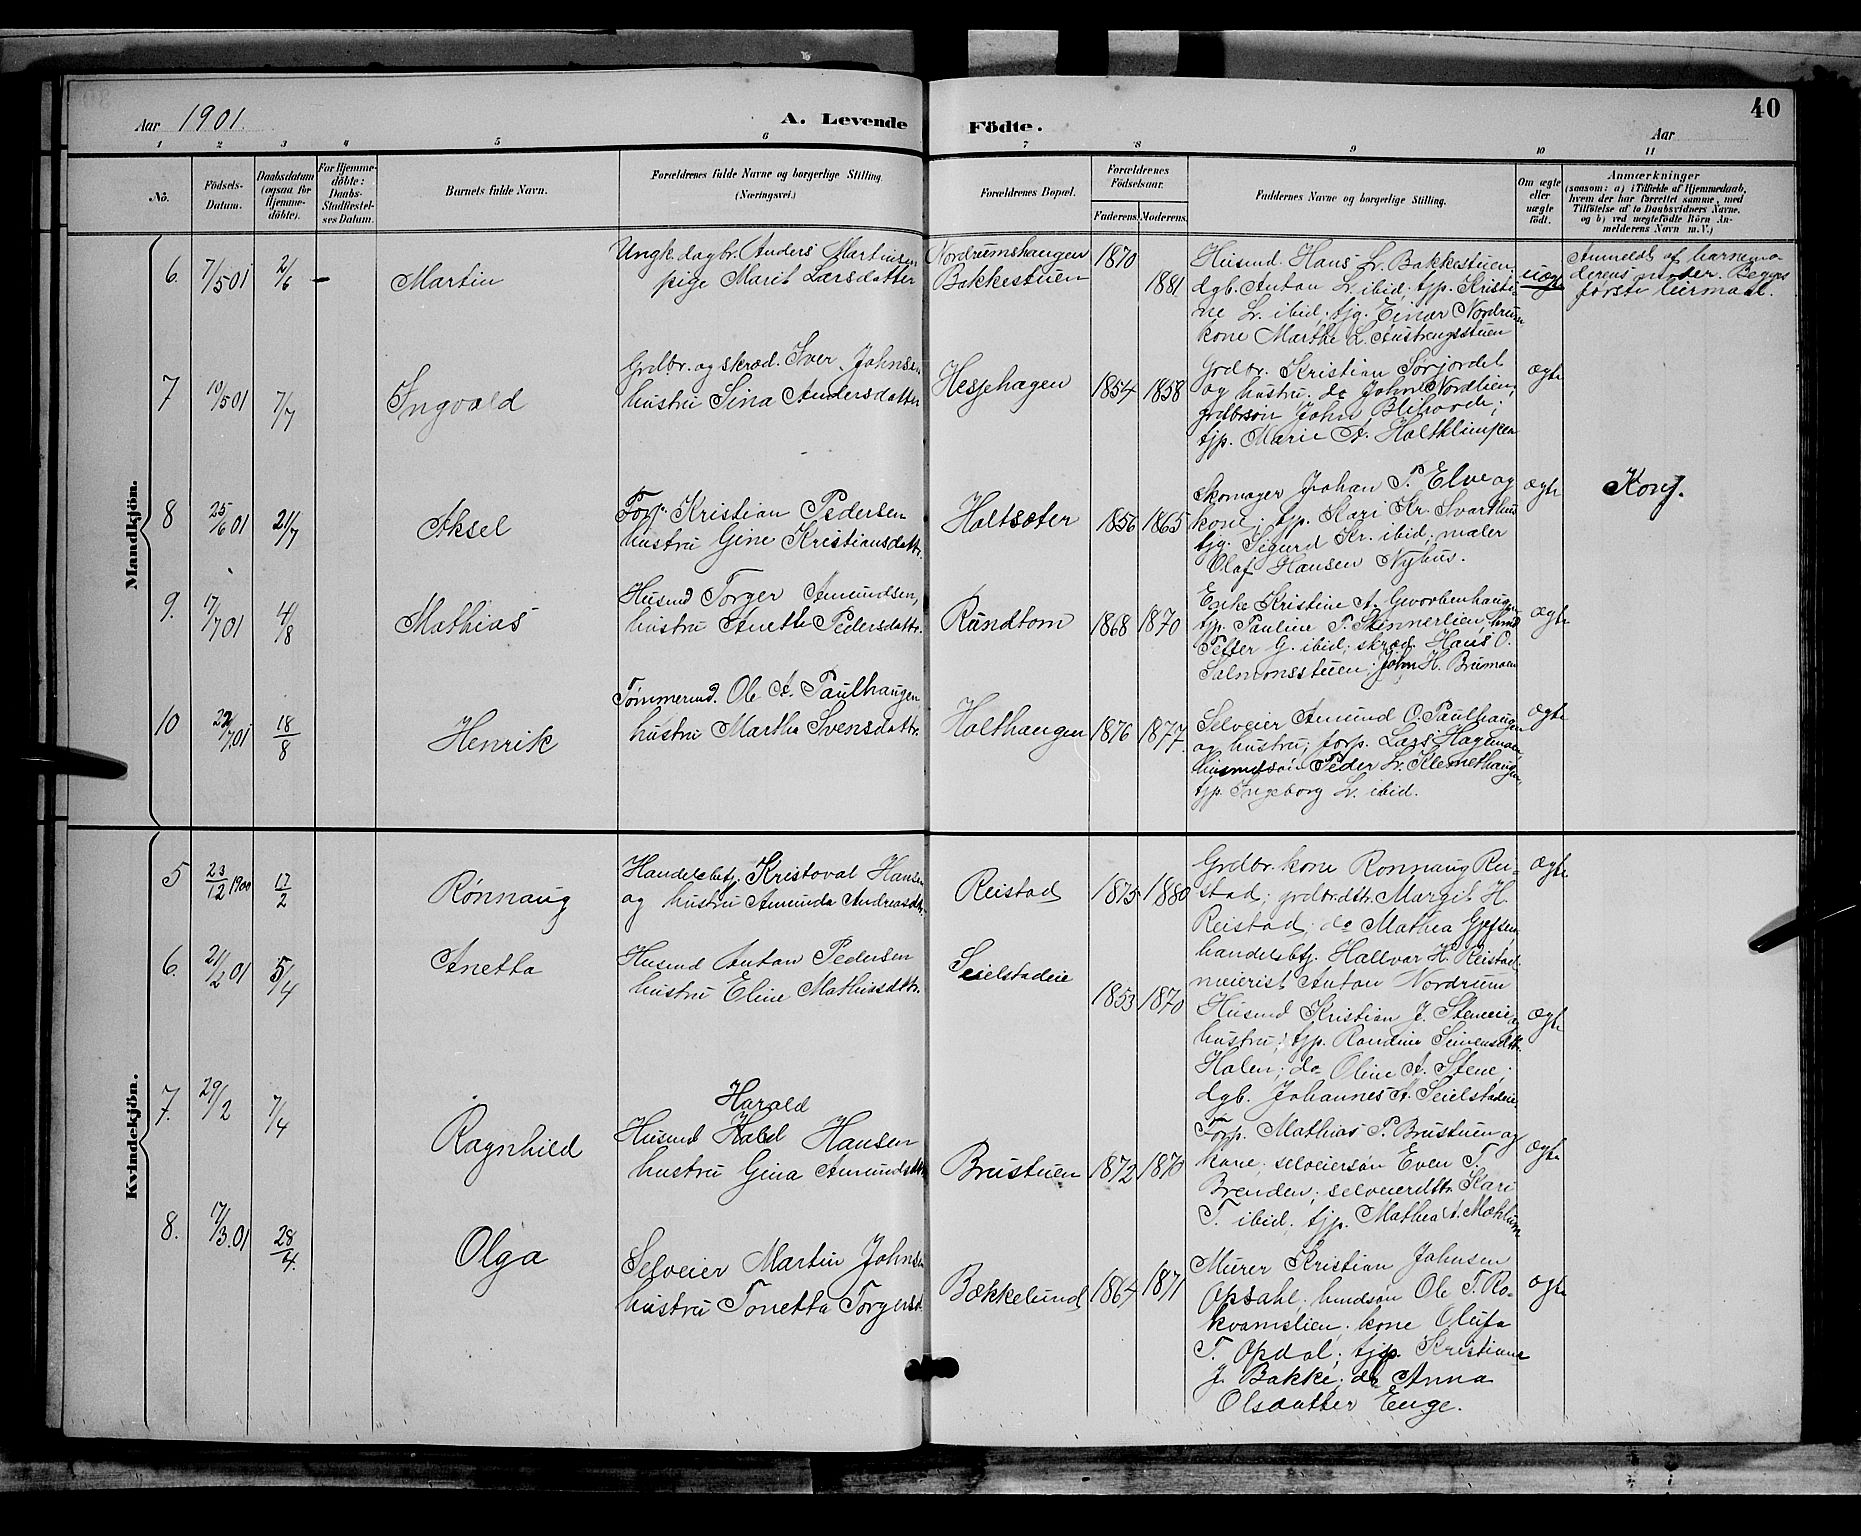 40
Aar 1901.
A. Levende Födte.
Aar
1 2 3 4 5 6 7 8 9 10 11
No.
Födsels-Datum.
Daabsdatum (ogsaa for Hjemme-döbte).
For Hjemme-döbte: Daabs-Stadfæstel-ses Datum.
Barnets fulde Navn.
Forældrenes fulde Navne og borgerlige Stilling (Næringsvei.)
Forældrenes Bopæl.
Forældrenes Födselsaar.
Faderens. Moderens.
Faddernes Navne og borgerlige Stilling.
Om ægte eller uægte födt.
Anmærkninger
(saasom: a) i Tilfælde af Hjemmedaab,
hvem der har forrettet samme, med
Tilföielse af to Daabsvidners Navne,
og b) ved uægtefödte Börn An-
melderens Navn m.V.)
Mandkjön.
6. 7/5 01 2/6 - Martin
Ungk. dagbr. Anders Martinsen
pige Marit Larsdatter
Nordrumshaugen
Bakkestuen
1870
1881
Husmd. Hans L. Bakkestuen;
dgb. Anton L. ibid; tjp. Kristi-
ne L. ibid; tjg. Einar Nordrum
kone Marthe L. Austengsstuen
uægte
Anmeldt af barnemo
derens moder. Begges
første leirmaal.
7 10/5 01 7/7 Ingvald
Grdbr. og skræd. Iver Johnsen
hustru Sina Andersdatter
Hessehagen
1854 1858
Grdbr. Kristian Sørjordet
og hustru; do John Nordlien;
grdbrsøn John
tjp. Marie A. Holtklimpen
ægte
8 25/6 01 21/7 Aksel
Forp. Kristian Pedersen
hustru Gine Kristiansdattr.
Holtsæter
1856 1865
Skomager Johan P. Elve og
kone; tjp. Kari Kr. Svarthus
tjg. Sigurd Kr. ibid; maler
Olaf Hansen Nyhus.
ægte
Konf.
9. 17/7 01 4/8 Mathias
Husmd Torger Amundsen,
hustru Anette Pedersdattr.
Rundtom
1868 1870
Enke Kristine A.
tjp. Pauline P. Skinnerlien, hmd
Petter G. ibid; skræd. Hans O.
Salmonsstuen; John H. Brumoen
ægte
10 22/7 01 18/8 Henrik
Tømmermd. Ole A. Paulhaugen
hustru Marthe Svensdattr.
Holthaugen
1876 1877.
Selveier Amund O. Paulhaugen
og hustru; forp. Lars Hagemoen,
husmdsøn Peder L. Klemethaugen,
tjp. Ingeborg L. ibid.
ægte
Kvindekjön.
5 23/12 1900 17/2 Rønnaug
Handelsbtj. Kristoval Hansen
og hustru Amunda Andreasdtr.
Reistad
1875 1880
Grdbr.kone Rønnaug Rei-
stad; grdbrdtr. Margit H.
Reistad; do Mathea Gjefsen,
handelsbtj. Hallvar H. Reistad
meierist Anton Nordrum
ægte
6. 21/2 01 5/4 Anetta
Husmd Anton Pedersen
hustru Eline Mathiasdttr.
Seielstadeie
1853 1870
Husmd Kristian J. Steneeie og
hustru; tjp. Randine Seivensdttr.
Holen; do Oline A. Stene;
dgb. Johannes A. Seielstadeie.
ægte
7. 29/2 7/4 Ragnhild
Harald
Husmd Hansen
hustru Gina Amundsdttr
Brustuen
1872 1870
Forp. Mathias P. Brustuen og
kone; selveiersøn Even T.
Brenden; selveierdttr Kari
T. ibid; tjp. Mathea A. Mæhlum
ægte
8. 17/3. 01 28/4. Olga
Selveier Martin Johnsen
hustru Tonetta Torgersd.
Bækkelund
1864 1871
Murer Kristian Johnsen
Opsahl; hmdsøn Ole T. Ro-
kvamslien; kone Olufa
T. Opdal; tjp. Kristiane
J. Bakke; do Anna
Olsdatter Enge.
ægte